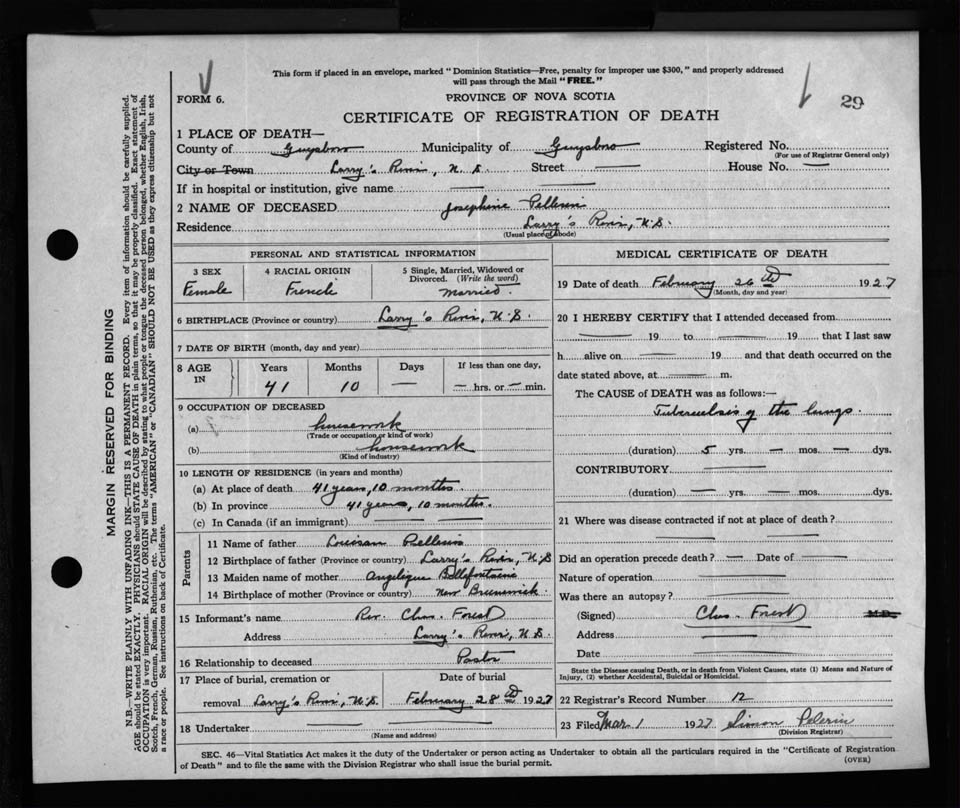 This form if placed in an envelope, marked "Dominion Statistics—Free, penalty for improper use $300," and properly addressed
will pass through the Mail "FREE."
FORM 6.
PROVINCE OF NOVA SCOTIA
29
CERTIFICATE OF REGISTRATION OF DEATH
1 PLACE OF DEATH—
County of Guysboro Municipality of Guysboro Registered No.
(For use of Registrar General only)
City or Town Larry's River, N.S. Street — House No. —
If in hospital or institution, give name — —
2 NAME OF DECEASED Josephine Pellerin
Residence Larry's River, N.S.
(Usual place of abode)
PERSONAL AND STATISTICAL INFORMATION
3 SEX 4 RACIAL ORIGIN 5 Single, Married, Widowed or
Divorced. (Write the word)
Female French Married.
6 BIRTHPLACE (Province or country) Larry's River, N.S.
7 DATE OF BIRTH (month, day and year)
8 AGE IN Years Months Days If less than one day,
41 10 — — hrs. or — min.
9 OCCUPATION OF DECEASED
(a) housework
(Trade or occupation or kind of work)
(b) housework
(Kind of industry)
10 LENGTH OF RESIDENCE (in years and months)
(a) At place of death 41 years, 10 months.
(b) In province 41 years, 10 months.
(c) In Canada (if an immigrant) — —
Parents
11 Name of father Louison Pellerin
12 Birthplace of father (Province or country) Larry's River, N.S
13 Maiden name of mother Angelique Bellefontaine
14 Birthplace of mother (Province or country) New Brunswick
15 Informant's name Rev. Chas. Forest
Address Larry's River, N.S.
16 Relationship to deceased Pastor
17 Place of burial, cremation or Date of burial
removal Larry's River, N.S. February 28th 1927
18 Undertaker — —
(Name and address)
MEDICAL CERTIFICATE OF DEATH
19 Date of death February 26th 1927
(Month, day and year)
20 I HEREBY CERTIFY that I attended deceased from
— 19 to — 19 that I last saw
h alive on — 19 and that death occurred on the
date stated above, at — m.
The CAUSE of DEATH was as follows:—
Tuberculsis of the lungs.
(duration) 5 yrs. — mos. — dys.
CONTRIBUTORY —
(duration) — yrs. — mos. dys.
21 Where was disease contracted if not at place of death?
— —
Did an operation precede death? — Date of —
Nature of operation —
Was there an autopsy? —
(Signed) Chas. Forest M.D.
Address —
Date —
State the Disease causing Death, or in death from Violent Causes, state (1) Means and Nature of
Injury, (2) whether Accidental, Suicidal or Homicidal.
22 Registrar's Record Number 12
23 Filed Mar. 1 1927 Simon Pelerin
(Division Registrar)
SEC. 46—Vital Statistics Act makes it the duty of the Undertaker or person acting as Undertaker to obtain all the particulars required in the "Certificate of Registration
of Death" and to file the same with the Division Registrar who shall issue the burial permit.
(OVER)
MARGIN RESERVED FOR BINDING
N.B.—WRITE PLAINLY WITH UNFADING INK—THIS IS A PERMANENT RECORD. Every item of information should be carefully supplied.
AGE should be stated EXACTLY. PHYSICIANS should STATE CAUSE OF DEATH in plain terms, so that it may be properly classified. Exact statement of
OCCUPATION is very important. RACIAL ORIGIN will be described by stating to what people or tongue the deceased person belonged, whether English, Irish,
Scotch, French, German, Russian, Ruthenian, etc. The terms "AMERICAN" or "CANADIAN" SHOULD NOT BE USED as they express citizenship but not
a race or people. See instructions on back of Certificate.